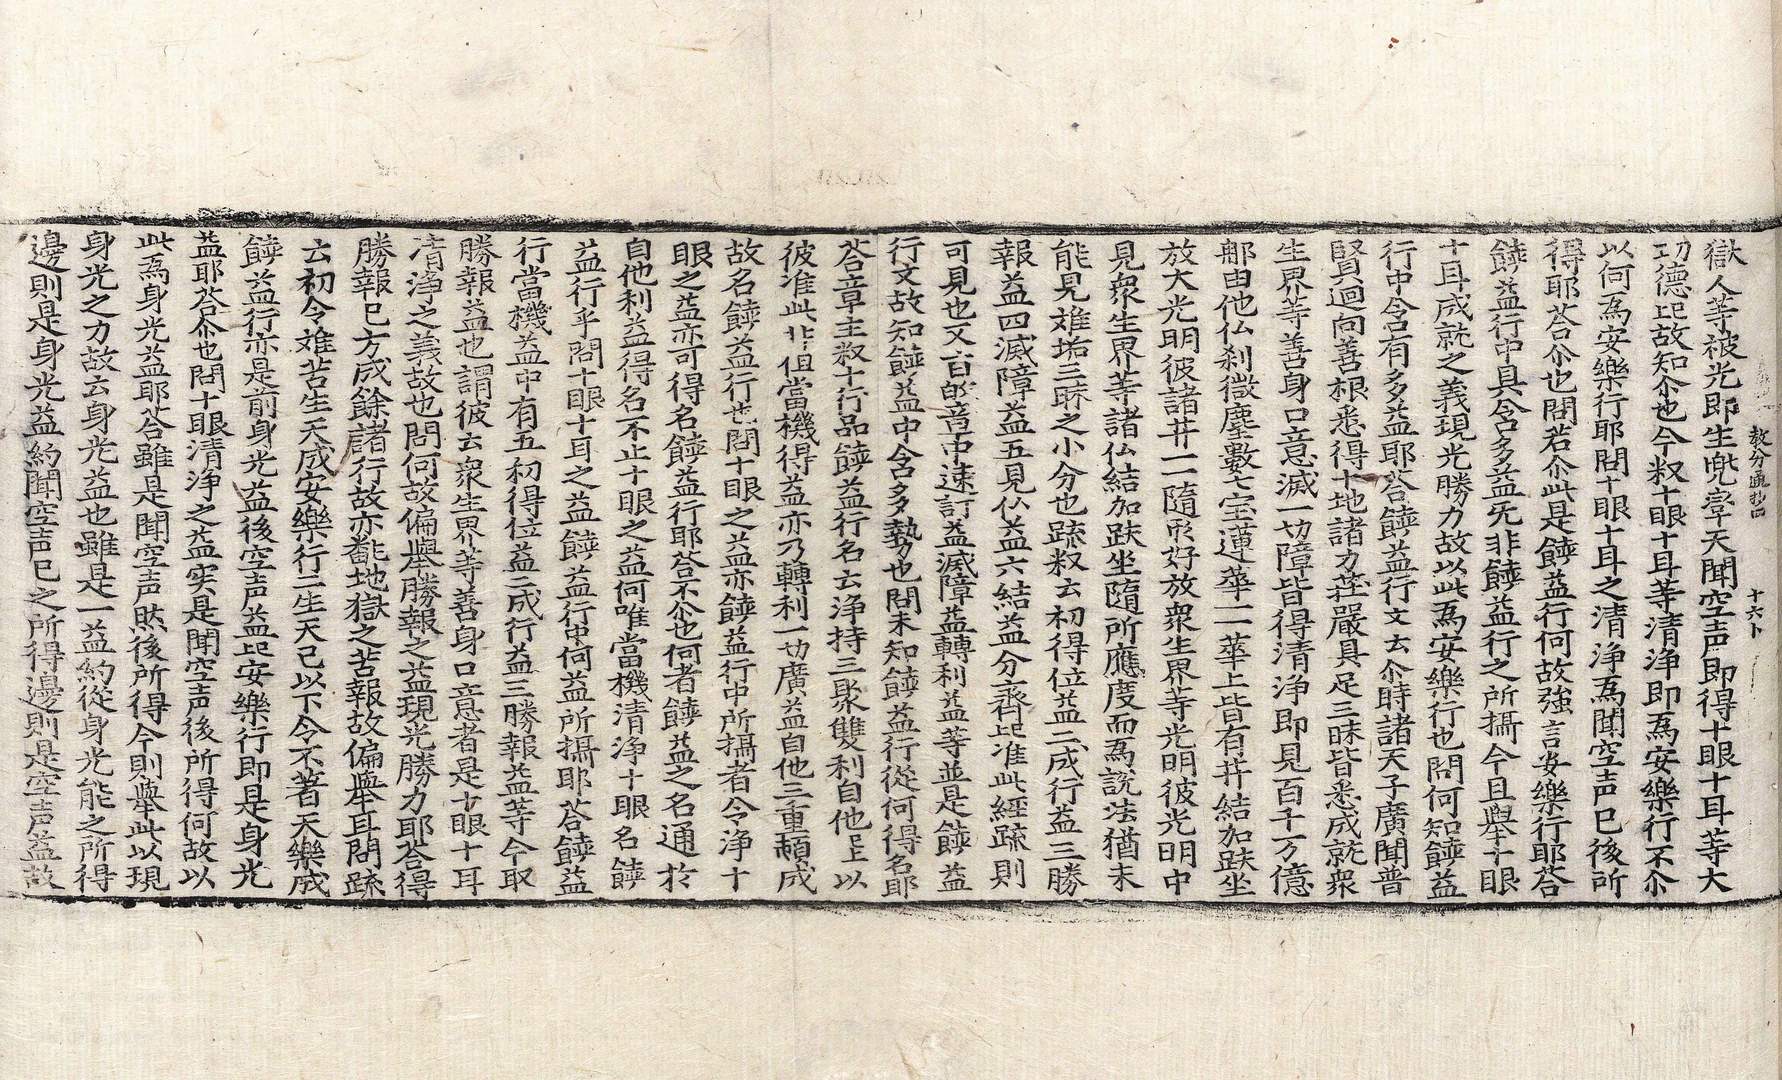 獄人等被光即生兠率天聞空声即得十眼十耳等大
功德㠯故知尒也今敎十眼十耳等清浄即為安樂行不尒
以何為安樂行耶問十眼十耳之清浄為聞空声已後所
得耶荅尒也問若尒此是饒益行何故強言安樂行耶荅
饒益行中具含多益旡非饒益行之所攝今且舉十眼
十耳成就之義現光勝力故以此為安樂行也問何知饒益
行中含有多益耶荅饒益行文云尒時諸天子廣聞普
賢迴向善根悉得十地諸力荘嚴具足三昧皆悉成就衆
生界等善身口意滅一切障皆得清浄即見百千万億
那由他仏刹微塵數七宝蓮華一一華上皆有菩薩結加趺坐
放大光明彼諸井一一隨形好放衆生界等光明彼光明中
見衆生界等諸仏結加趺坐隨所應度而為說法猶未
能見離垢三昧之小分也䟽敎云初得位益二成行益三勝
報益四滅障益五見仏益六結益分齊㠯准此經䟽則
可見也又古的音中速訂益滅障益轉利益等並是饒益
行文故知饒益中含多勢也問未知饒益行從何得名耶
荅章主敎十行品饒益行名云浄持三聚雙利自他㠯上以
彼准此非但當機得益亦乃轉利一切廣益自他三重頓成
故名饒益行也問十眼之益亦饒益行中所攝者令浄十
眼之益亦可得名饒益行耶荅不尒也何者饒益之名通於
自他利益得名不止十眼之益何唯當機清浄十眼名饒
益行乎問十眼十耳之益饒益行中何益所攝耶荅饒益
行當機益中有五初得位益二成行益三勝報益等今取
勝報益也謂彼云衆生界等善身口意者是十眼十耳
清浄之義故也問何故偏舉勝報之益現光勝力耶荅得
勝報已方成餘諸行故亦翻地獄之苦報故偏舉耳問䟽
云初令難苦生天成安樂行二生天已以下令不著天樂成
饒益行亦是前身光益後空声益㠯安樂行即是身光
益耶荅尒也問十眼清浄之益実是聞空声後所得何故以
此為身光益耶荅雖是聞空声然後所得今則舉此以現
身光之力故云身光益也雖是一益約從身光能之所得
邊則是身光益約聞空声已之所得邊則是空声益故
教分通抄四 十六卜